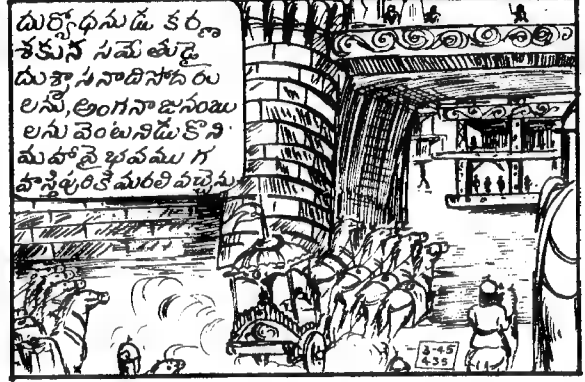 దుర్యోధనుడు కర్ణ
శకున సమేతుడై
దుశ్శాసనాదిసోదరు
లను, అంగనాజనంబు
లను వెంటనిడుకొని
మహావైభవము గ
హస్తిపురికి మరలి వచ్చెను
3-45
435